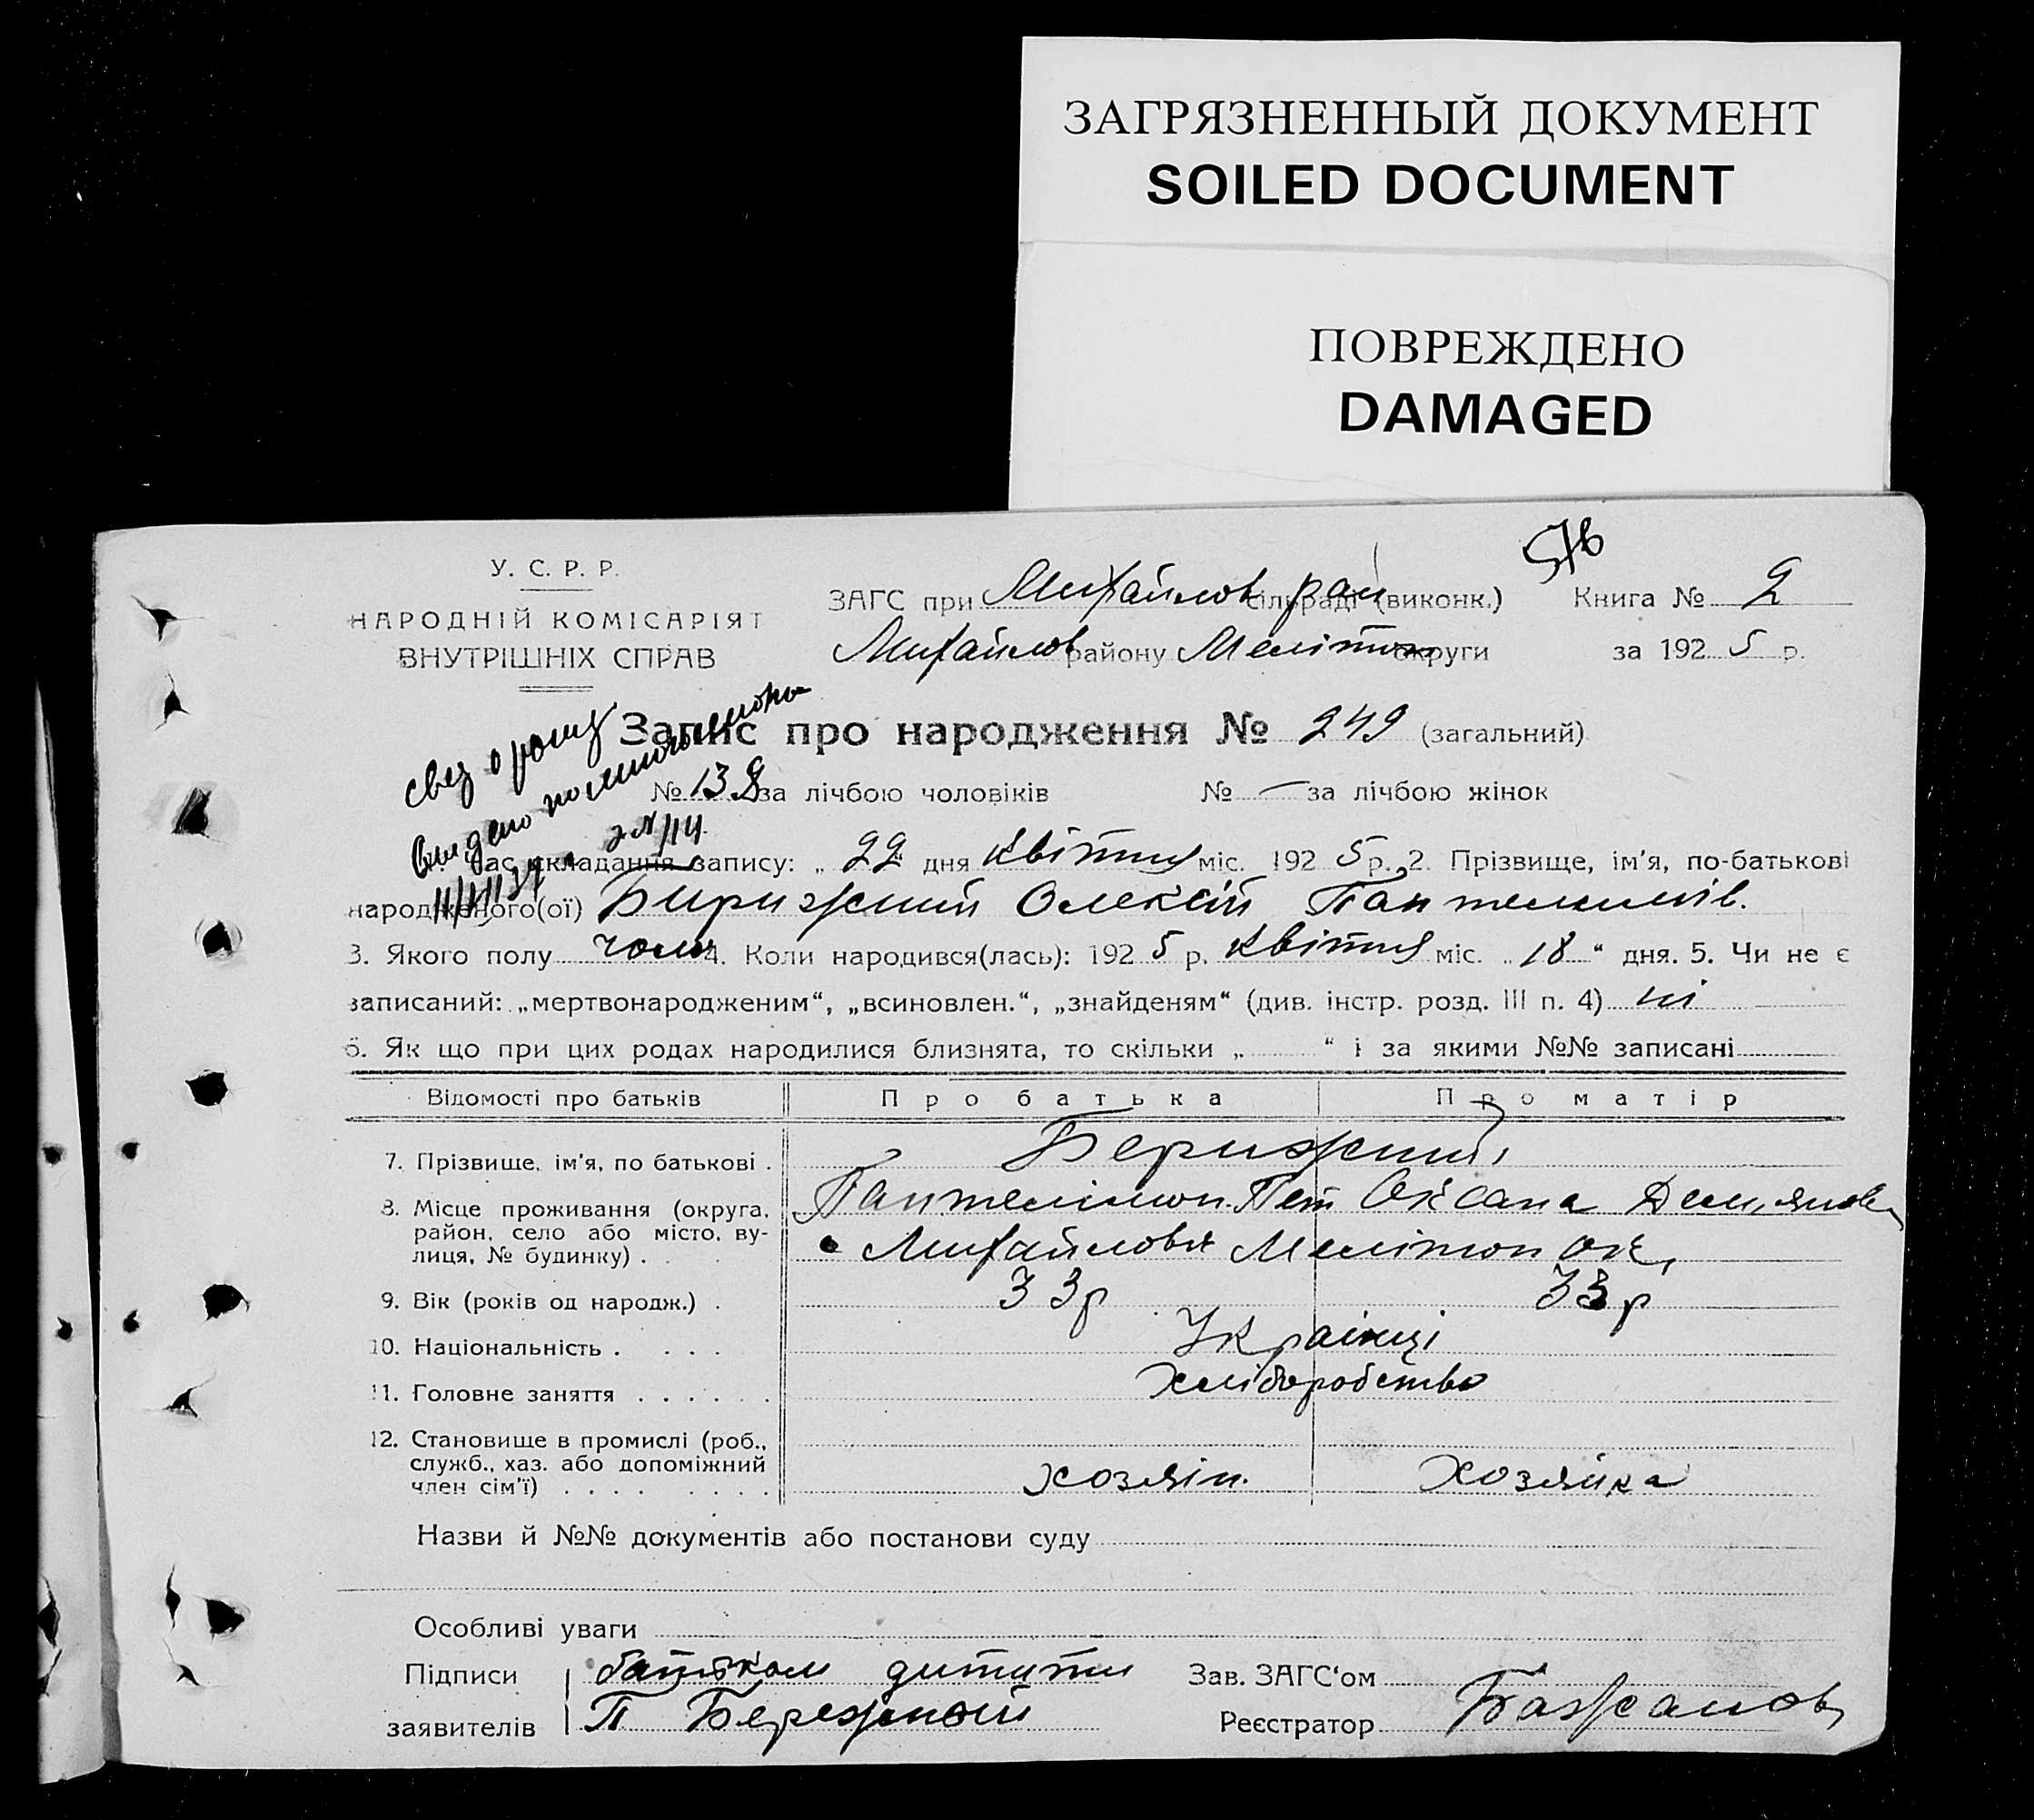 ЗАГРЯЗНЕННЫЙ ДОКУМЕНТ
SOILED DOCUMENT
ПОВРЕЖДЕНО
DAMAGED
У. С. Р. Р.
НАРОДНІЙ КОМІСАРІЯТ
ВНУТРІШНІХ СПРАВ
ЗАГС при Михайлов рай сільраді (виконк.) Книга № 2
Михайлов району Мелітоп округи за 1925 р.
Запис про народження № 249 (загальний)
№ 132 за лічбою чоловіків № — за лічбою жінок
час складання запису: „ 22 " дня квітня міс. 1925 р. 2. Прізвище, ім'я, по-батькові
народженого(ої) Бирижний Олексій Пантелимів.
3. Якого полу чолов 4. Коли народився(лась): 1925 р. квітня міс. „18" дня. 5. Чи не є
записаний: „мертвонародженим", „всиновлен.", „знайденям" (див. інстр. розд. III п. 4) ні
6. Як що при цих родах народилися близнята, то скільки „ " і за якими №№ записані
Відомості про батьків Про батька Про матір
7. Прізвище, ім'я, по батькові . Берижний,
Пантелімон Пет Оксана Демяновн
8. Місце проживання (округа, район, село або місто, вулиця, № будинку) . Михайловка Мелітоп ок,
9. Вік (років од народж.) . 33 р 33 р
10. Національність . . . . Українці
11. Головне заняття . . . . . . Хліборобство
12. Становище в промислі (роб., служб., хаз. або допоміжний член сім'ї) . . . . . . . . хозяін. хозяйка
Назви й №№ документів або постанови суду
Особливі уваги
Підписи заявителів батьком дитини
П Бережной
Зав. ЗАГС'ом
Реєстратор Бажанов